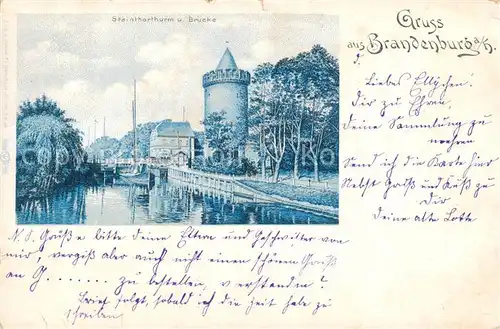 Steinthorthurm u. Brücke
Gruss
aus Brandenburg a/H.
Liebes Ellychen!
Dir zu Ehren,
Deine Sammlung zu
mehren
Send ich die Karte hier
Nebst Gruß und Kuß zu
Dir
Deine alte Lotte
N. S. Grüße bitte Deine Eltern und Geschwister von
mir, vergiß aber auch nicht einen schönen Gruß
an G........ zu bestellen, verstanden?
Brief folgt, sobald ich die Zeit habe zu
schreiben